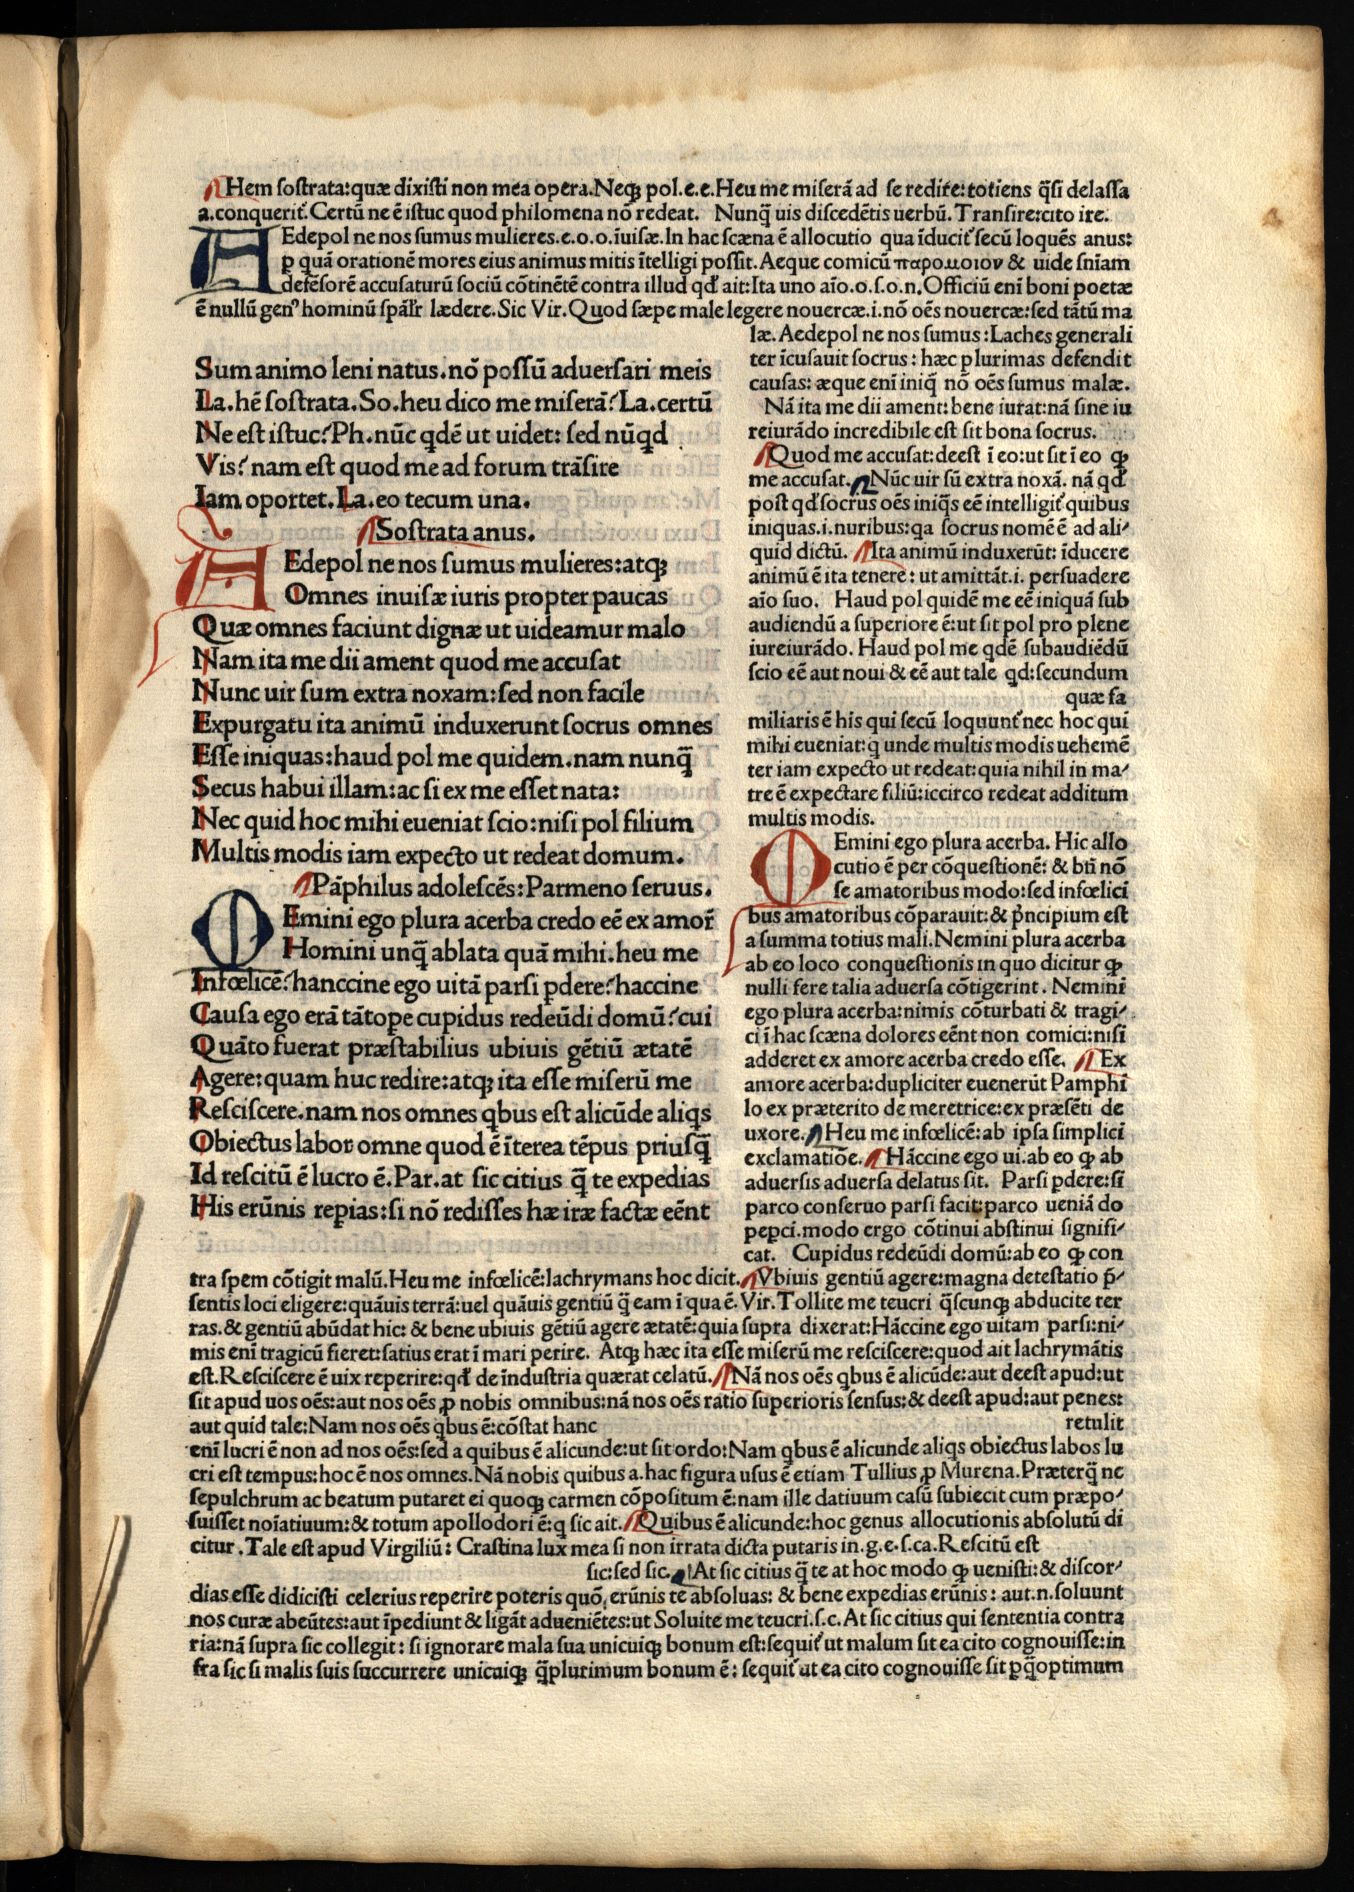 Hem sostrata:quæ dixisti non mea opera.Neqꝫ pol.e.e.Heu me miserā ad se redire:totiens q̄si delassa
a.conquerit᷑.Certū ne ē istuc quod philomena nō redeat. Nunq̄ uis discedētis uerbū.Transire:cito ire.
AEdepol ne nos sumus mulieres.e.o.o.īuisæ.In hac scæna ē allocutio qua īducit᷑ secū loquēs anus:
ꝑ quā orationē mores eius animus mitis ītelligi possit.Aeque comicū παρομοιον & uide sn̄iam
defēsorē accusaturū sociū cōtinētē contra illud qd̛ ait:Ita uno aīo.o.s.o.n.Officiū enī boni poetæ
ē nullū genꝰ hominū spāl̛r lædere.Sic Vir.Quod sæpe male legere nouercæ.i.nō oēs nouercæ:sed tātū ma
læ. Aedepol ne nos sumus:Laches generali
ter īcusauit socrus: hæc plurimas defendit
causas: æque enī iniq̄ nō oēs sumus malæ.
Nā ita me dii ament: bene iurat:nā sine iu
reiurādo incredibile est sit bona socrus.
Quod me accusat:deest ī eo:ut sit ī eo ꝙ
me accusat. Nūc uir sū extra noxā. nā qd̛
post qd̛ socrus oēs iniq̄s eē intelligit᷑ quibus
iniquas.i.nuribus:qa socrus nomē ē ad ali-
quid dictū. Ita animū induxerūt: īducere
animū ē ita tenere: ut amittāt.i. persuadere
aīo suo. Haud pol quidē me eē iniquā sub
audiendū a superiore ē:ut sit pol pro plene
iureiurādo. Haud pol me qdē subaudiēdū
scio eē aut noui & eē aut tale qd:secundum
quæ fa
miliaris ē his qui secū loquunt᷑ nec hoc qui
mihi eueniat:q unde multis modis uehemē
ter iam expecto ut redeat:quia nihil in ma-
tre ē expectare filiū:iccirco redeat additum
multis modis.
Sum animo leni natus.nō possū aduersari meis
La.hē sostrata.So.heu dico me miserā? La.certū
Ne est istuc? Ph.nūc qdē ut uidet: sed nūqd
Vis? nam est quod me ad forum trāsire
Iam oportet.La.eo tecum una.
Sostrata anus.
AEdepol ne nos sumus mulieres:atqꝫ
Omnes inuisæ iuris propter paucas
Quæ omnes faciunt dignæ ut uideamur malo
Nam ita me dii ament quod me accusat
Nunc uir sum extra noxam:sed non facile
Expurgatu ita animū induxerunt socrus omnes
Esse iniquas:haud pol me quidem.nam nunq̄
Secus habui illam:ac si ex me esset nata:
Nec quid hoc mihi eueniat scio:nisi pol filium
Multis modis iam expecto ut redeat domum.
Pāphilus adolescēs:Parmeno seruus.
NEmini ego plura acerba credo eē ex amor̄
Homini unq̄ ablata quā mihi.heu me
Infœlicē? hanccine ego uitā parsi ꝑdere? haccine
Causa ego erā tātope cupidus redeūdi domū? cui
Quāto fuerat præstabilius ubiuis gētiū ætatē
Agere:quam huc redire:atqꝫ ita esse miserū me
Resciscere.nam nos omnes qbus est alicūde aliqs
Obiectus labor omne quod ē īterea tēpus priusq̄
Id rescitū ē lucro ē.Par.at sic citius q̄ te expedias
His erūnis repias:si nō redisses hæ iræ factæ eēnt
NEmini ego plura acerba. Hic allo
cutio ē per cōquestionē: & bn̄ nō
se amatoribus modo:sed infœlici
bus amatoribus cōparauit:& p̄ncipium est
a summa totius mali.Nemini plura acerba
ab eo loco conquestionis in quo dicitur ꝙ
nulli fere talia aduersa cōtigerint. Nemini
ego plura acerba:nimis cōturbati & tragi-
ci ī hac scæna dolores eēnt non comici:nisi
adderet ex amore acerba credo esse. Ex
amore acerba:dupliciter euenerūt Pamphi
lo ex præterito de meretrice:ex præsēti de
uxore. Heu me infœlicē:ab ipsa simplici
exclamatiōe. Hāccine ego ui.ab eo ꝙ ab
aduersis aduersa delatus sit. Parsi ꝑdere:si
parco conseruo parsi facit:parco ueniā do
peꝑci.modo ergo cōtinui abstinui signifi-
cat. Cupidus redeūdi domū:ab eo ꝙ con
tra spem cōtigit malū.Heu me infœlicē:lachrymans hoc dicit. Vbiuis gentiū agere:magna detestatio p̄-
sentis loci eligere:quāuis terrā:uel quāuis gentiū q̄ eam ī qua ē.Vir.Tollite me teucri q̄scunqꝫ abducite ter
ras.& gentiū abūdat hic: & bene ubiuis gētiū agere ætatē:quia supra dixerat:Hāccine ego uitam parsi:ni-
mis enī tragicū fieret:satius erat ī mari perire. Atqꝫ hæc ita esse miserū me resciscere:quod ait lachrymātis
est.Resciscere ē uix reperire:qd̛ de īndustria quærat celatū. Nā nos oēs qbus ē alicūde:aut deest apud:ut
sit apud uos oēs:aut nos oēs ꝓ nobis omnibus:nā nos oēs ratio superioris sensus:& deest apud:aut penes:
aut quid tale:Nam nos oēs qbus ē:cōstat hanc retulit
enī lucri ē non ad nos oēs:sed a quibus ē alicunde:ut sit ordo:Nam qbus ē alicunde aliqs obiectus labos lu
cri est tempus:hoc ē nos omnes.Nā nobis quibus a.hac figura usus ē etiam Tullius ꝓ Murena.Præterq̄ ne
sepulchrum ac beatum putaret ei quoqꝫ carmen cōpositum ē:nam ille datiuum casū subiecit cum præpo-
suisset noīatiuum:& totum apollodori ē:q sic ait. Quibus ē alicunde:hoc genus allocutionis absolutū di
citur.Tale est apud Virgiliū: Crastina lux mea si non irrata dicta putaris in.g.e.s.ca.Rescitū est
sic:sed sic. At sic citius q̄ te at hoc modo ꝙ uenisti:& discor-
dias esse didicisti celerius reperire poteris quō, erūnis te absoluas: & bene expedias erūnis: aut.n.soluunt
nos curæ abeūtes:aut īpediunt & ligāt adueniētes:ut Soluite me teucri.s.c.At sic citius qui sententia contra
ria:nā supra sic collegit: si ignorare mala sua unicuiqꝫ bonum est:sequit᷑ ut malum sit ea cito cognouisse:in
fra sic si malis suis succurrere unicuiqꝫ q̄plurimum bonum ē: sequit᷑ ut ea cito cognouisse sit ꝑq̄optimum